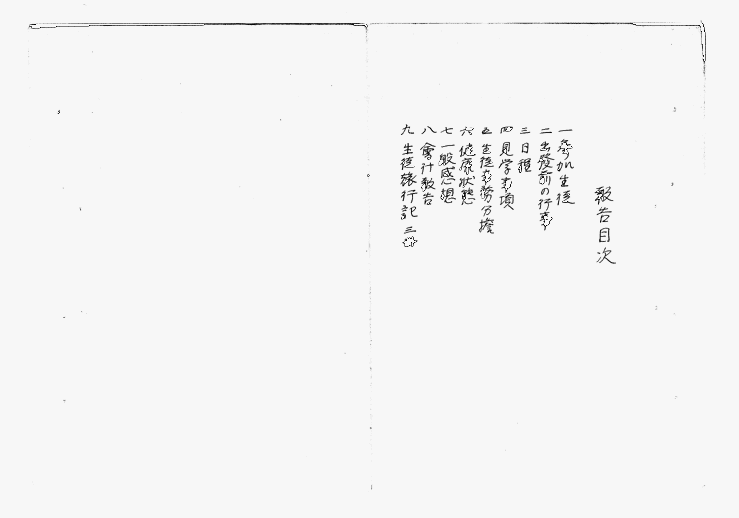 報告目次
一 参加生徒
二 出發前の行事
三 日程
四 見学事項
五 生徒事務分擔
六 健康狀態
七 一般感想
八 會計報告
九 生徒旅行記 三